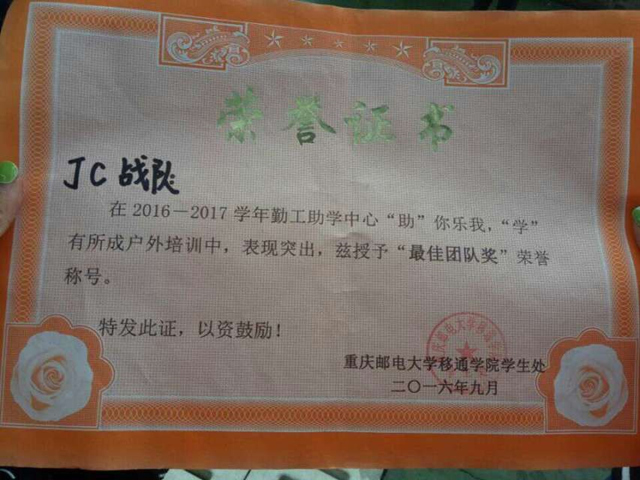 荣誉证书
JC战队
在2016－2017学年勤工助学中心“助”你乐我，“学”
有所成户外培训中，表现突出，兹授予“最佳团队奖”荣誉
称号。
特发此证，以资鼓励！
重庆邮电大学移通学院学生处
二〇一六年九月